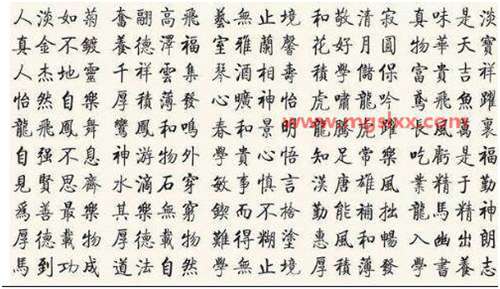 人淡如菊 奮翮高飛 藝無止境 和敬清寂 真味是淡
真金不鍍 養德澤福 室雅蘭馨 花好月圓 物華天寶
人杰地靈 千祥雲集 琴酒相壽 學儲保 富貴吉祥
怡然自樂 厚積薄發 心曠神怡 虎嘯龍吟 鳶飛魚躍
龍飛鳳舞 鸞鳳和鳴 春和景明 龍騰虎躍 長風萬裏
www.mgslxx.com
自强不息 神游物外 學貴心悟 知足常樂 吃虧是福
見賢思齊 水滴石穿 敏事慎言 漢唐雄風 業精于勤
爲善最樂 其樂無窮 鍥而不捨 勤能補拙 龍馬精神
厚德載物 厚德載物 難得糊塗 惠風和暢 入幽出朗
馬到功成 道法自然 學無止境 厚積薄發 學書養志